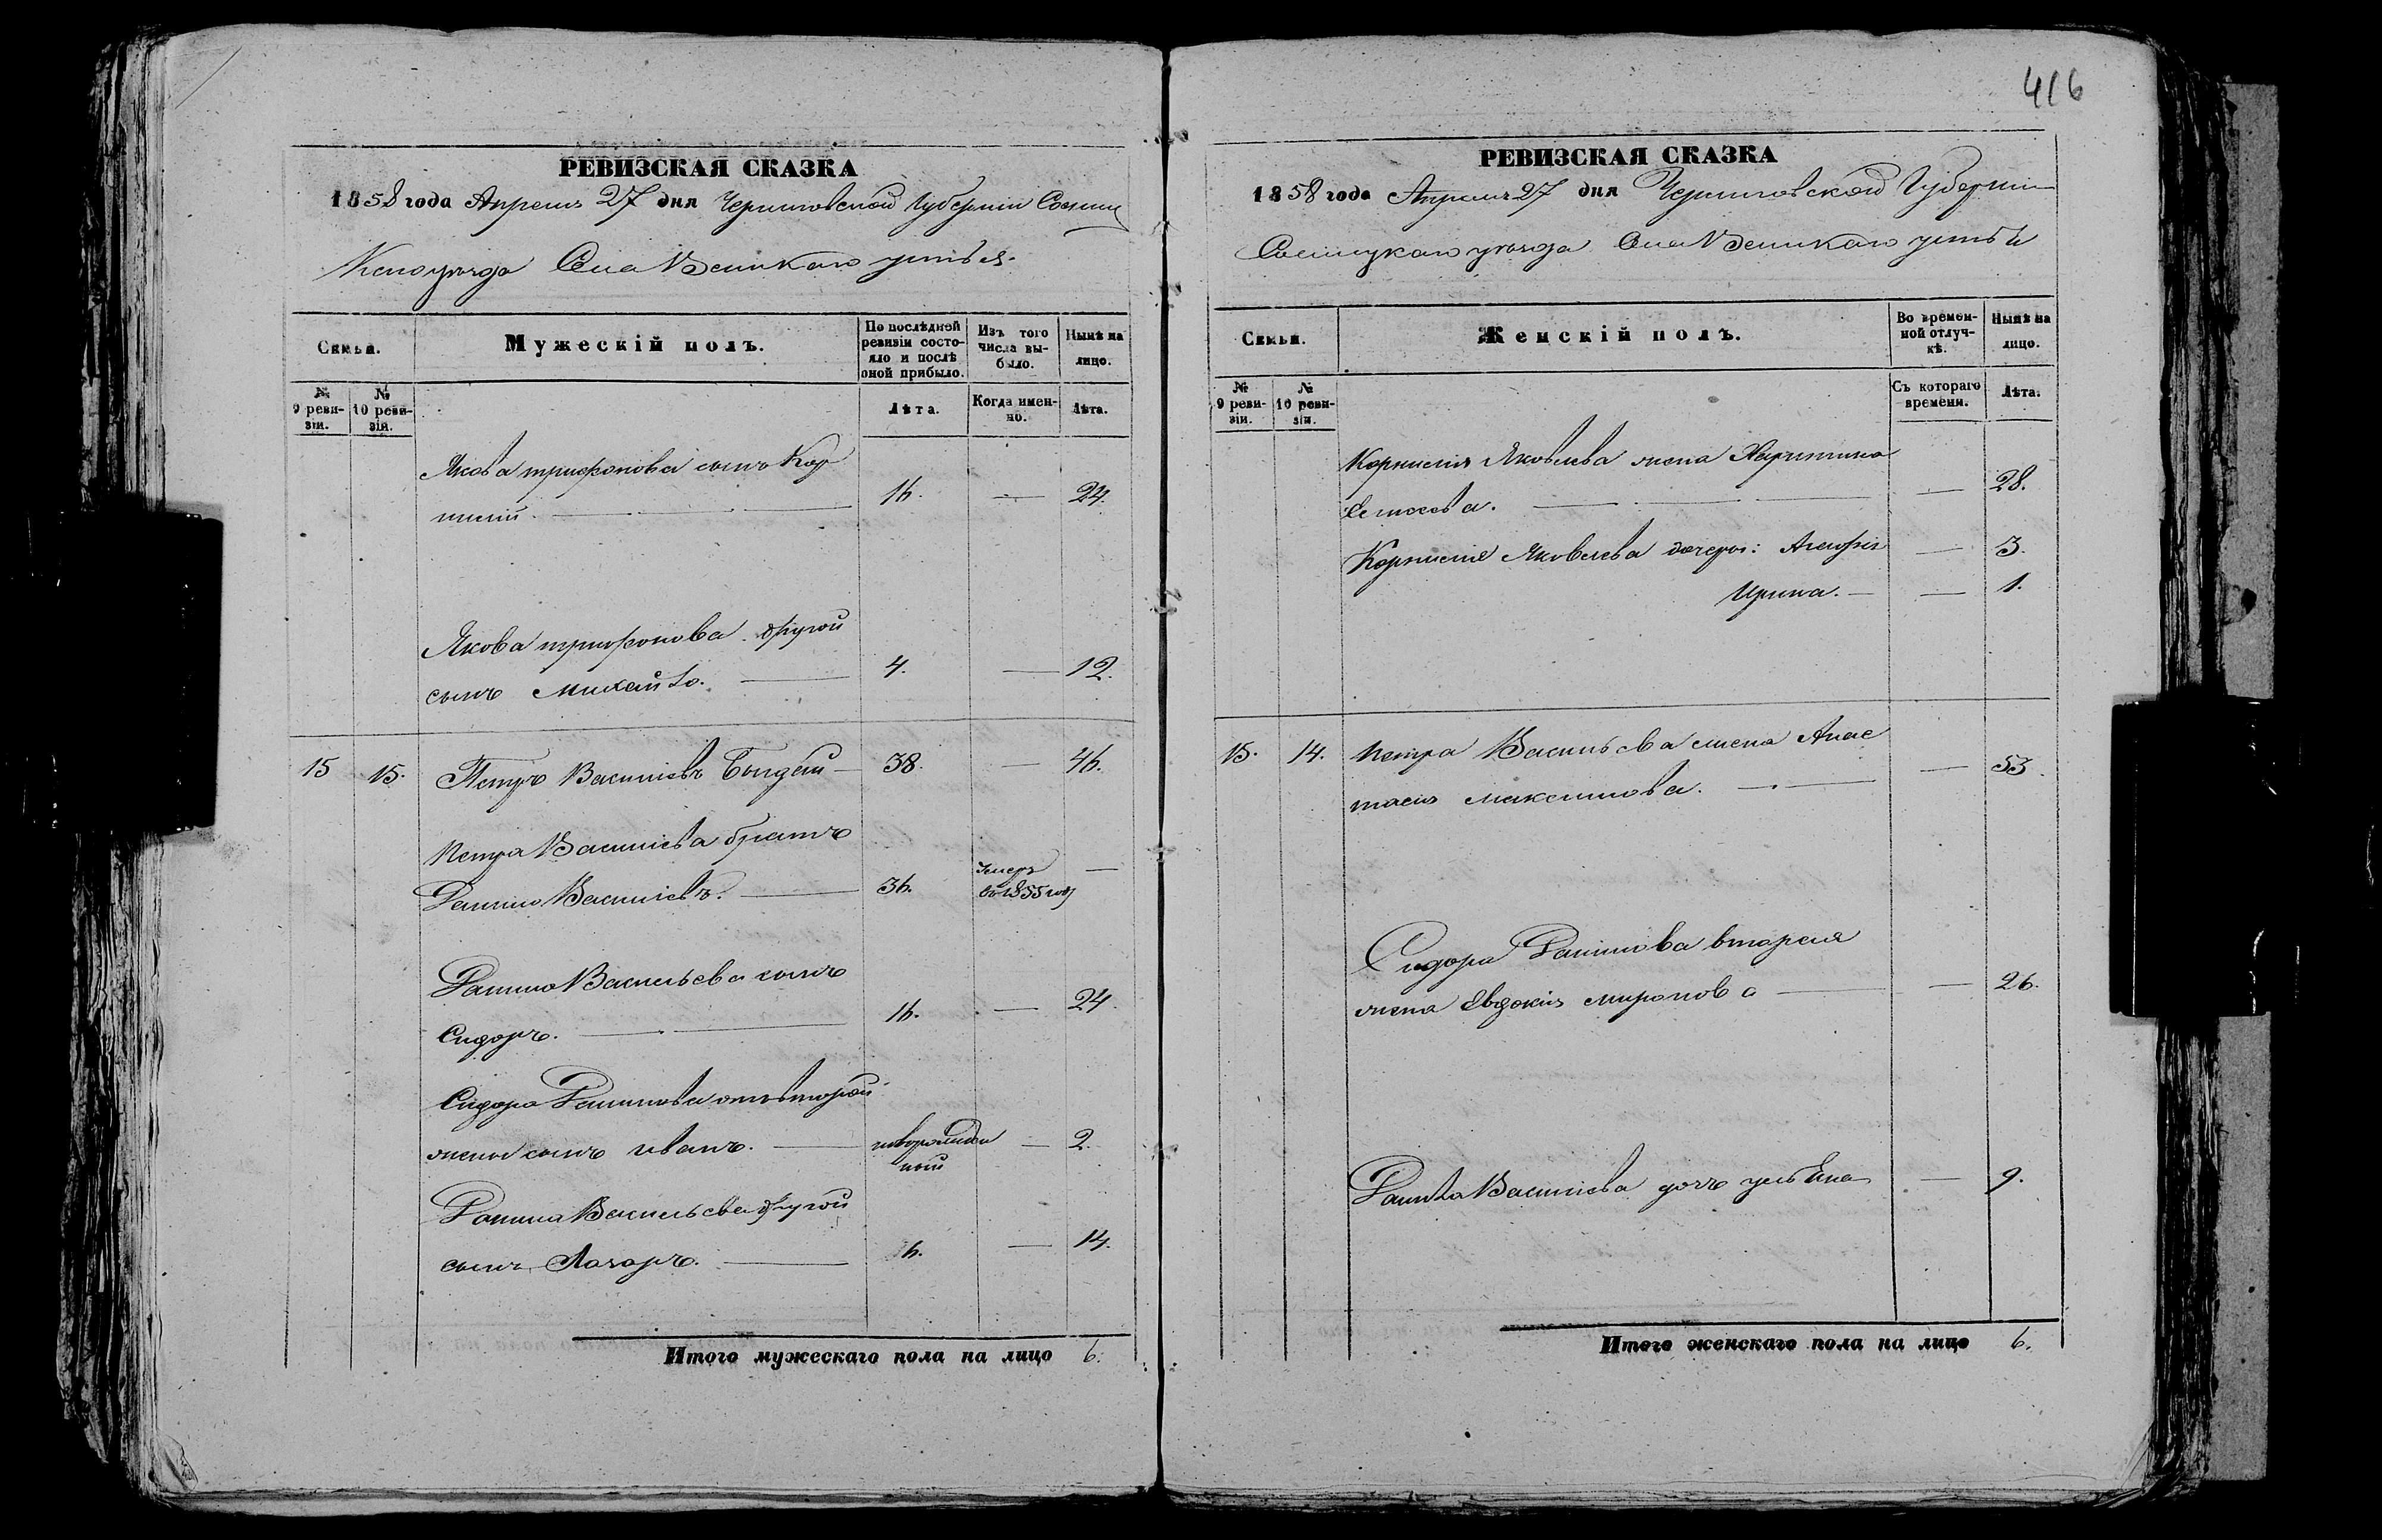 416
РЕВИЗСКАЯ СКАЗКА
1858 года Апреля 27 дня Черниговской Губерніи Сосниц
каго уѣзда Села Великаго устья.
Семьи.
Мужескій полъ.
По послѣдней ревизіи состояло и послѣ оной прибыло.
Изъ того числа выбыло.
Нынѣ на лицо.
№ 9 ревизіи.
№ 10 ревизіи.
Лѣта.
Когда именно.
Лѣта.
Якова трифонова сынъ Кор
нилій. 16. — 24.
Якова трифонова другой
сынъ михайло. 4. — 12.
15 15. Петръ Василіевъ 38. — 46.
Петра Василіева братъ
Данило Василіевъ. 36. Умеръ въ 1855 году —
Данила Васильева сынъ
Сидоръ. 16. — 24.
Сидора Данилова отъ второй
жены сынъ иванъ. новорожден
ный — 2.
Данила Васильева другой
сынъ Лазаръ. 6. — 14.
Итого мужескаго пола на лицо 6.
РЕВИЗСКАЯ СКАЗКА
1858 года Апреля 27 дня Черниговской Губерніи
Сосницкаго уѣзда Села Великаго устья
Семьи.
Женскій полъ.
Во временной отлучкѣ.
Нынѣ на лицо.
№ 9 ревизіи.
№ 10 ревизіи.
Съ котораго времени.
Лѣта.
Корнилія Яковлева жена Харитина
— 28.
Корнилія Яковлева дочери: — 3.
Ирина. — — 1.
15. 14. Петра Васильева жена Анас
тасія максимова. — 53.
Сидора Данилова вторая
жена Евдокія миронова — — 26.
Данила Василіева дочь ульяна — 9.
Итого женскаго пола на лицо 6.